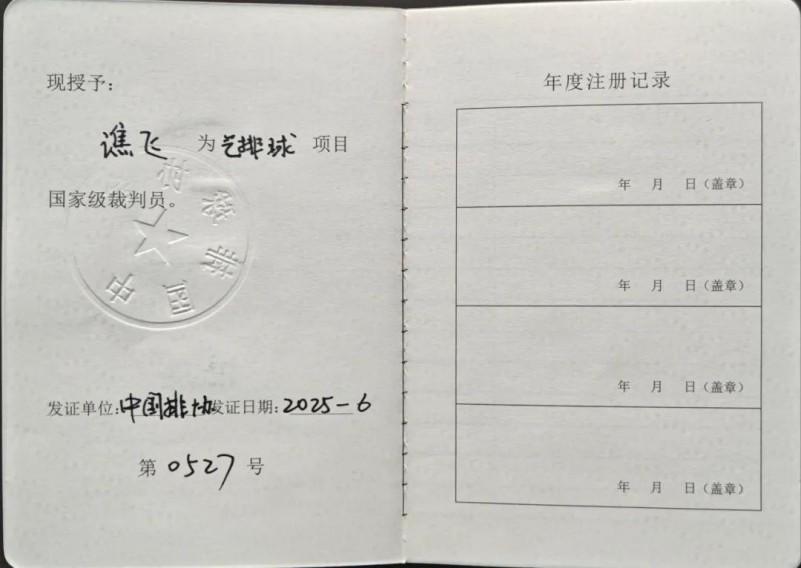 现授予：
谯飞 为气排球 项目
国家级裁判员。
中国排球协
发证单位：中国排协 发证日期：2025-6
第 0527 号
年度注册记录
年 月 日（盖章）
年 月 日（盖章）
年 月 日（盖章）
年 月 日（盖章）